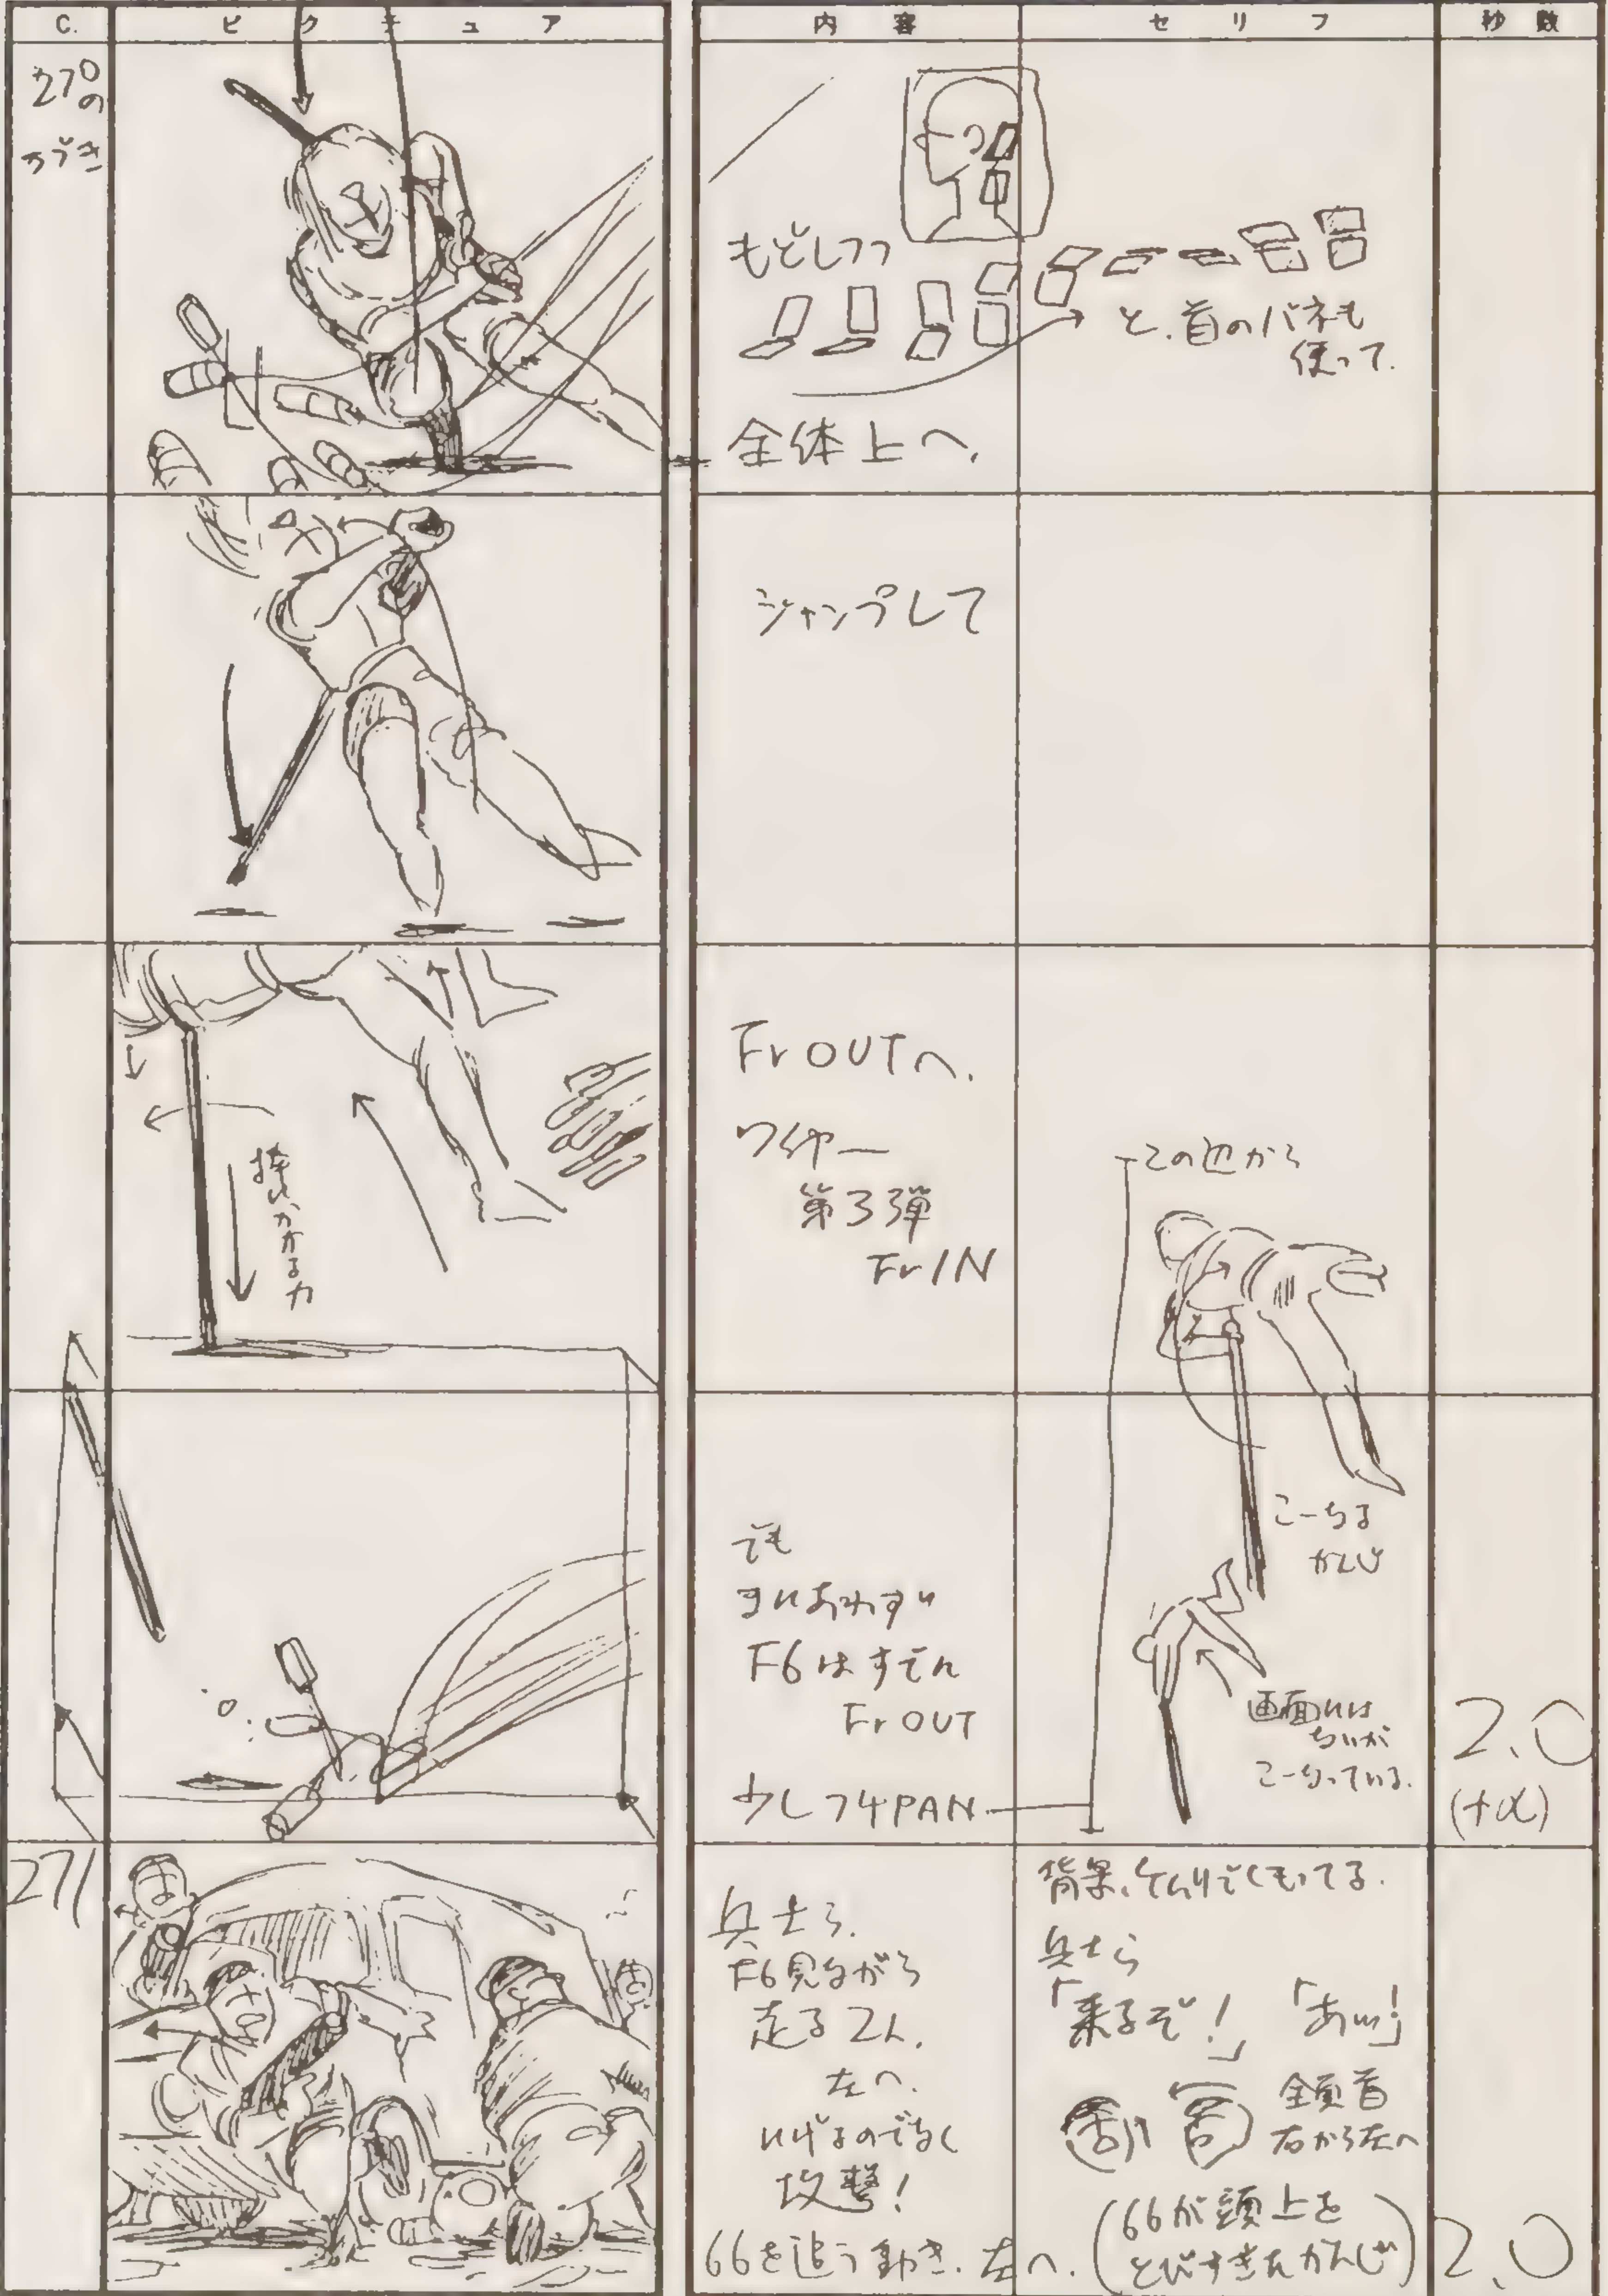 C.
ピクチュア
内容
セリフ
秒数
270
の
つづき
もどしつつ
と、首のバネも
使って.
全体上へ.
ジャンプして
Fr OUTへ.
ワイヤー
第3弾
Fr IN
かかる力
この辺から
こーなる
かんじ
でも
まにあわずに
F6はすでに
Fr OUT
少しフ4PAN
画面には
ないが
こーなっている.
2.0
(+α)
271
兵士ら.
F6見ながら
走る2人.
左へ.
にげるのでなく
攻撃!
66を追う動き.左へ.
背景、けむりでくもってる.
兵士ら
「来るぞ!」
「あッ!」
全員首
右から左へ
(66が頭上を
とびすぎたかんじ)
2.0